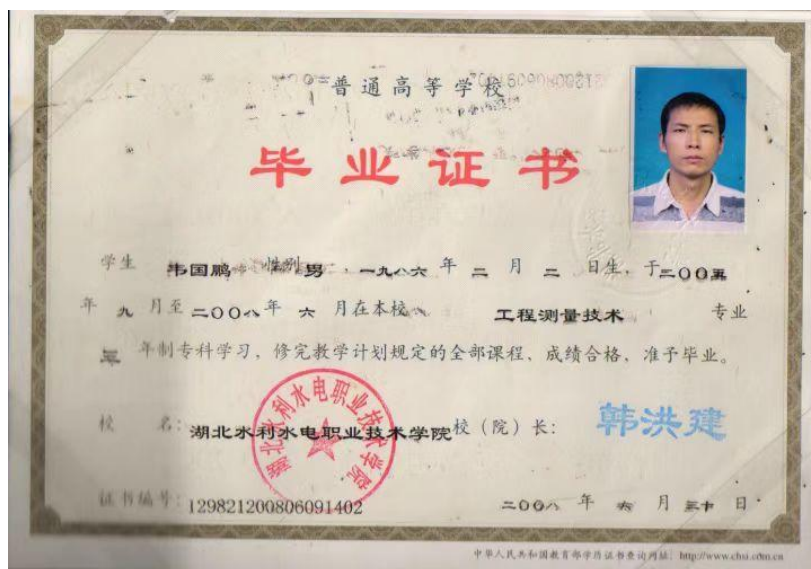 普通高等学校
毕业证书
学生 韦国鹏 性别 男，一九八六 年 二 月 二 日生，于二〇〇五
年 九 月至 二〇〇八 年 六 月在本校 工程测量技术 专业
三 年制专科学习，修完教学计划规定的全部课程，成绩合格，准予毕业。
校 名：湖北水利水电职业技术学院 校（院）长： 韩洪建
湖北水利水电职业技术学院
证书编号：129821200806091402 二〇〇八 年 六 月 三十 日
中华人民共和国教育部学历证书查询网址：http://www.chsi.com.cn